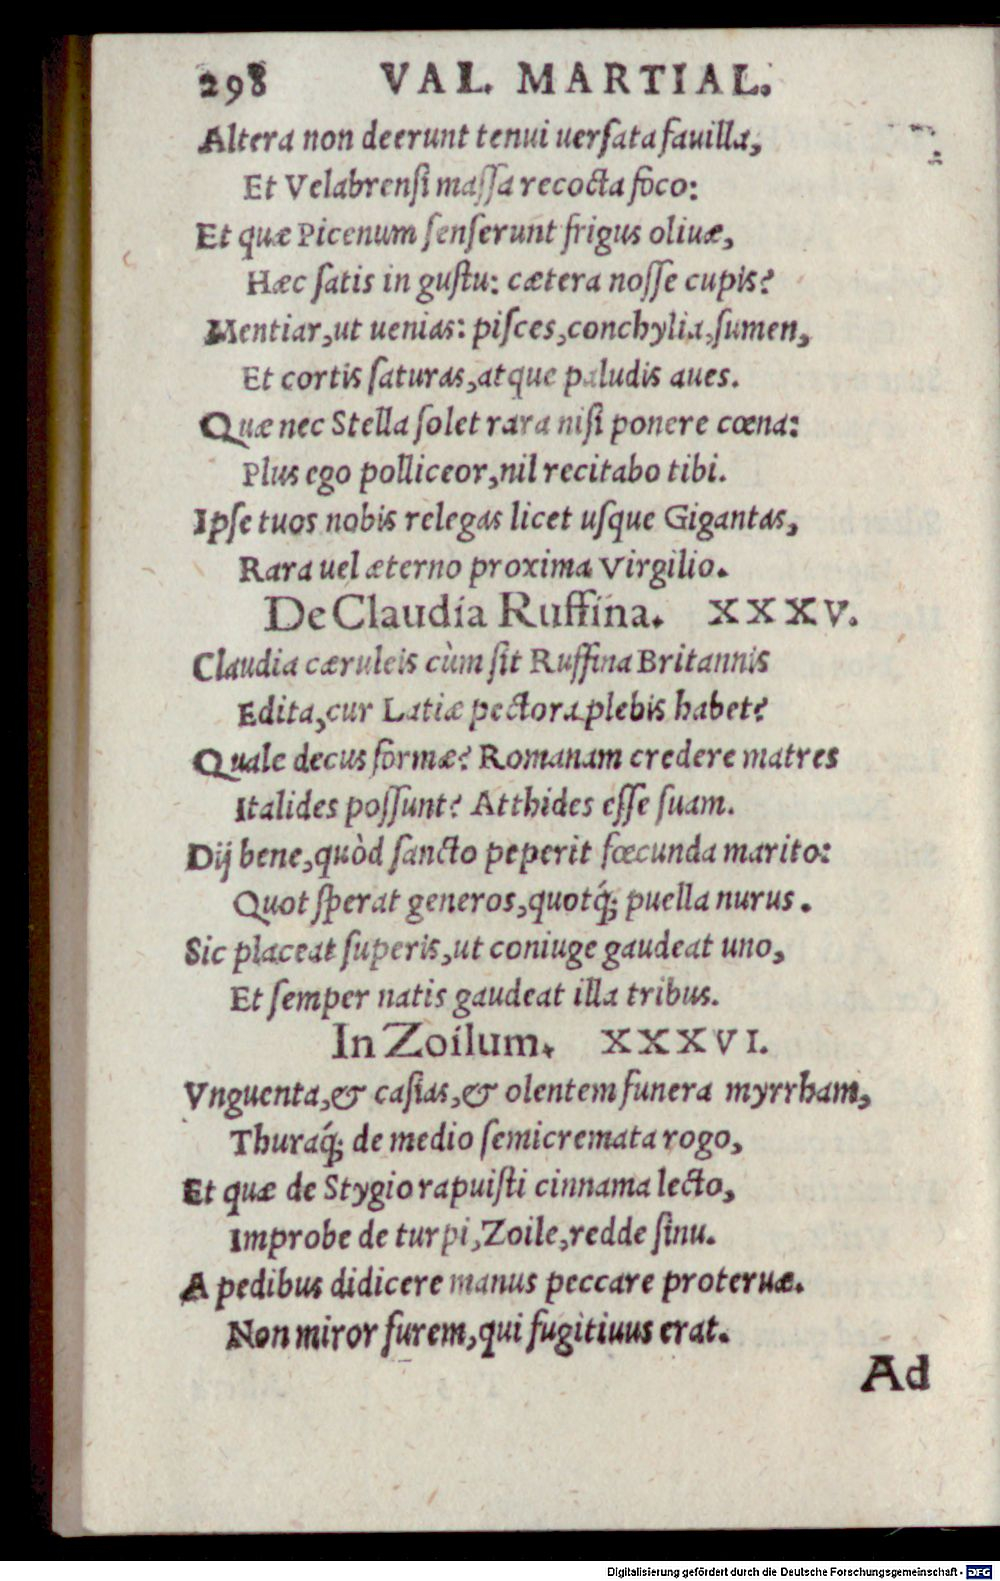 298 VAL. MARTIAL.
Altera non deerunt tenui uerſata fauilla,
Et Velabrenſi maſſa recocta foco:
Et quæ Picenum ſenſerunt frigus oliuæ,
Hæc ſatis in guſtu: cætera noſſe cupis?
Mentiar, ut uenias: piſces, conchylia, ſumen,
Et cortis ſaturas, atque paludis aues.
Quæ nec Stella ſolet rara niſi ponere cœna:
Plus ego polliceor, nil recitabo tibi.
Ipſe tuos nobis relegas licet uſque Gigantas,
Rara uel æterno proxima Virgilio.
De Claudia Ruffina. XXXV.
Claudia cæruleis cùm ſit Ruffina Britannis
Edita, cur Latiæ pectora plebis habet?
Quale decus formæ? Romanam credere matres
Italides poſſunt? Atthides eſſe ſuam.
Dij bene, quòd ſancto peperit fœcunda marito:
Quot ſperat generos, quotq́; puella nurus.
Sic placeat ſuperis, ut coniuge gaudeat uno,
Et ſemper natis gaudeat illa tribus.
In Zoilum. XXXVI.
Vnguenta, & caſias, & olentem funera myrrham,
Thuraq́; de medio ſemicremata rogo,
Et quæ de Stygio rapuiſti cinnama lecto,
Improbe de turpi, Zoile, redde ſinu.
A pedibus didicere manus peccare proteruæ.
Non miror furem, qui fugitiuus erat.
Ad
Digitalisierung gefördert durch die Deutsche Forschungsgemeinschaft - DFG